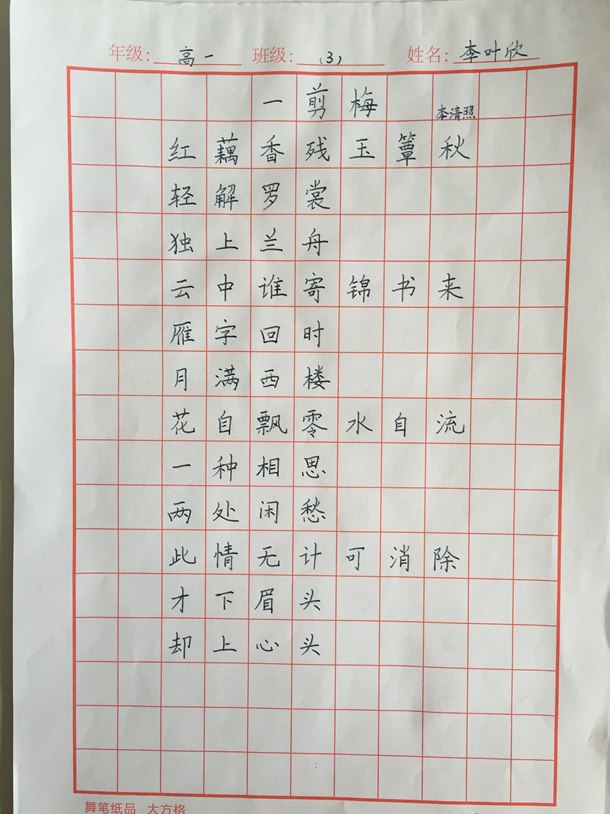 年级: 高一 班级: (3) 姓名: 李叶欣
一剪梅 李清照
红藕香残玉簟秋
轻解罗裳
独上兰舟
云中谁寄锦书来
雁字回时
月满西楼
花自飘零水自流
一种相思
两处闲愁
此情无计可消除
才下眉头
却上心头
舞笔纸品 大方格